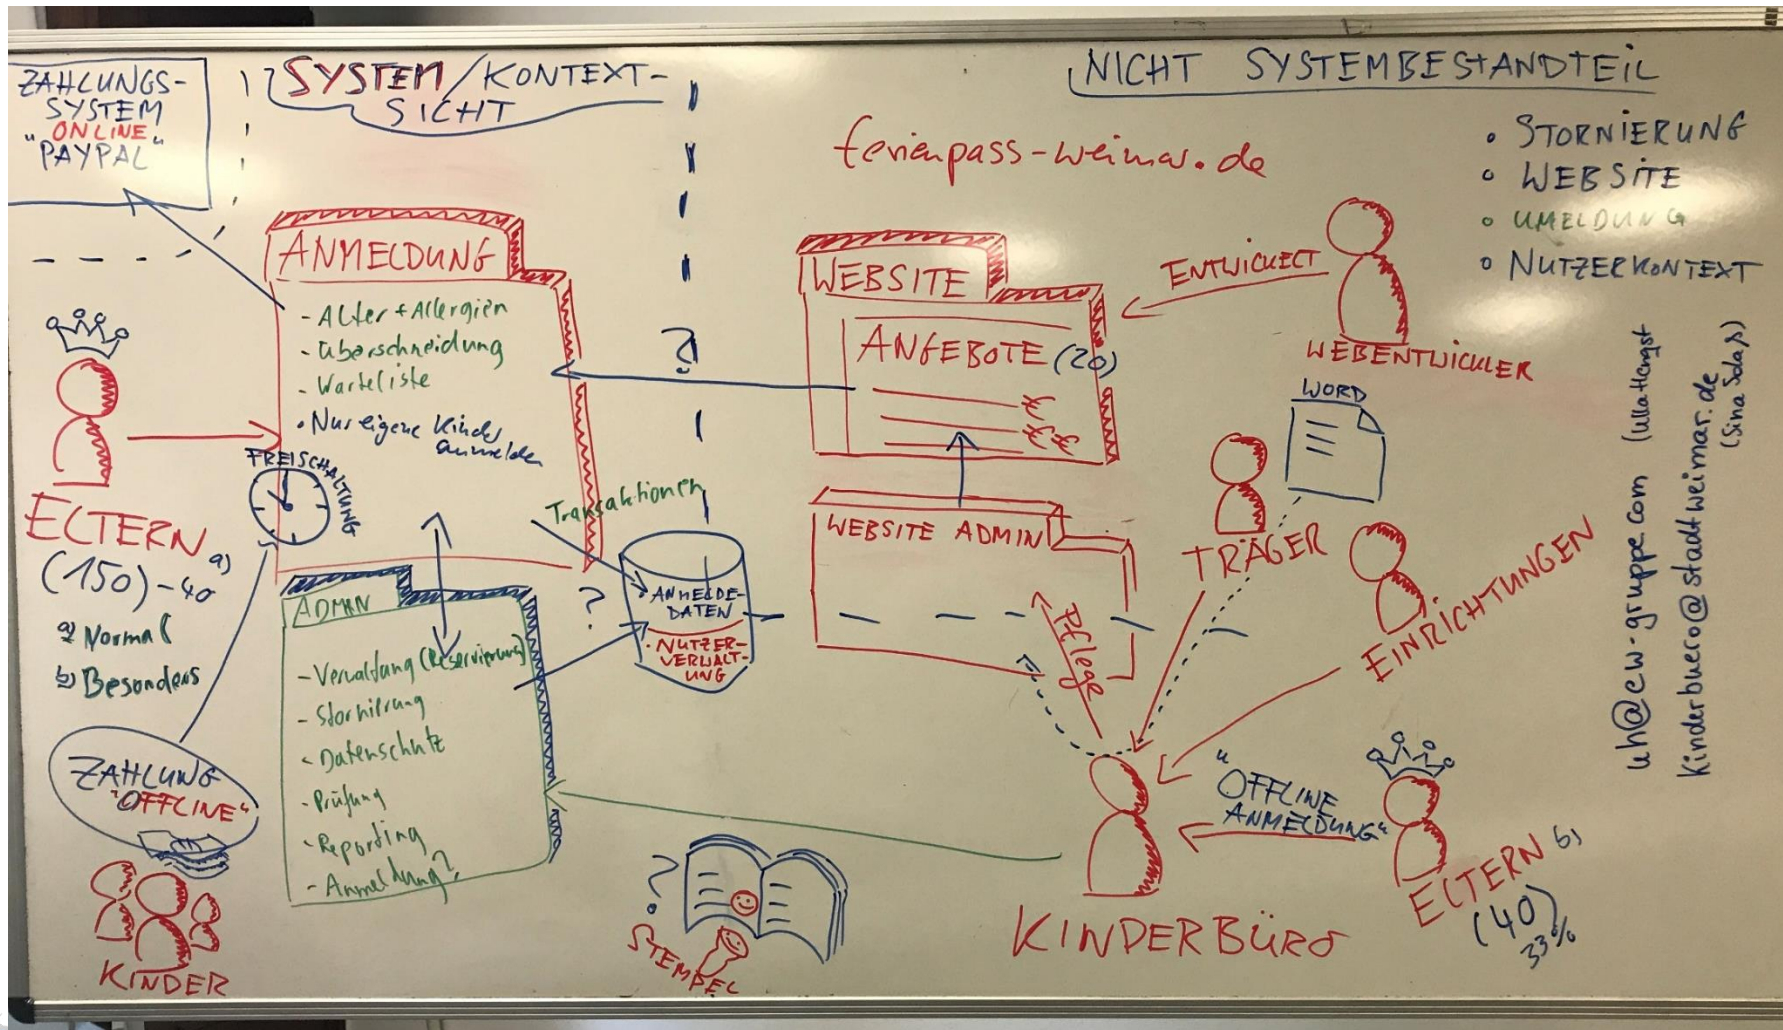 ZAHLUNGS-
SYSTEM
"ONLINE"
PAYPAL"
SYSTEM/KONTEXT-
SICHT
NICHT SYSTEMBESTANDTEIL
• STORNIERUNG
• WEBSITE
• UMELDUNG
• NUTZERKONTEXT
ferienpass-weimar.de
ANMELDUNG
- Alter + Allergien
- Überschneidung
- Warteliste
• Nur eigene Kinder
anmelden
FREISCHALTUNG
ELTERN a)
(150) - 40
a) Normal
b) Besonders
ZAHLUNG
"OFFLINE"
KINDER
ADMIN
- Verwaltung (Reservierung)
- Stornirung
- Datenschutz
- Prüfung
- Reporting
- Anmeldung?
Transaktionen
?
?
ANMELDE-
DATEN
• NUTZER-
VERWALT-
UNG
WEBSITE
ANGEBOTE (20)
WEBSITE ADMIN
Pflege
ENTWICKELT
WEBENTWICKLER
WORD
TRÄGER
EINRICHTUNGEN
"OFFLINE
ANMELDUNG"
ELTERN b)
(40)
33%
KINDERBÜRO
?
STEMPEL
uh@cw-gruppe.com (Ulla Hengst
kinderbuero@stadtweimar.de